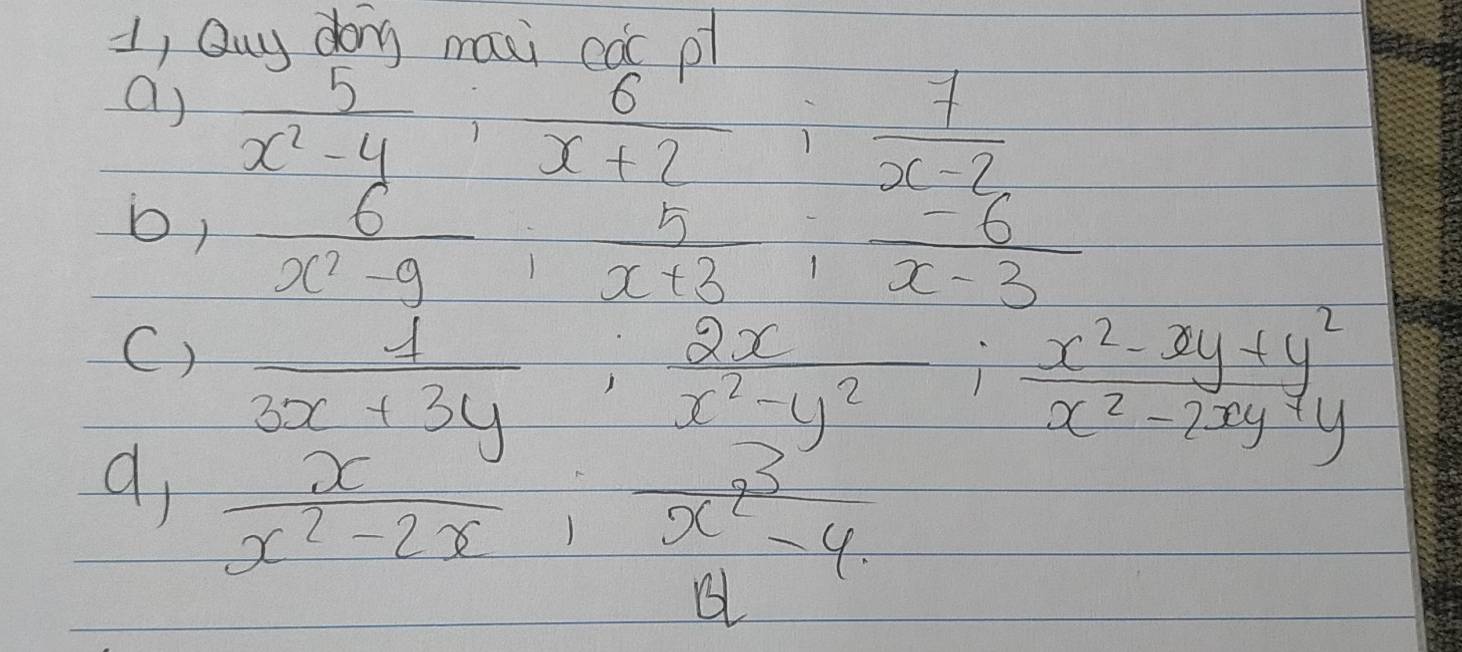 1, Quy đồng mẫu các pt
a) 5/(x² - 4) ; 6/(x + 2) ; 7/(x - 2)
b, 6/(x² - 9) ; 5/(x + 3) ; -6/(x - 3)
c) 1/(3x + 3y) ; 2x/(x² - y²) ; (x² - xy + y²)/(x² - 2xy + y)
d, x/(x² - 2x) ; 3/(x² - 4).
BL